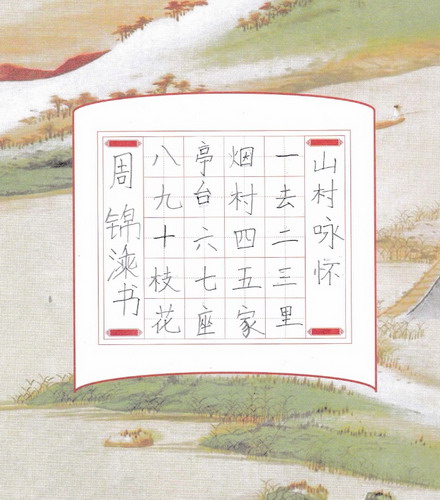 山村咏怀
一去二三里
烟村四五家
亭台六七座
八九十枝花
周锦书